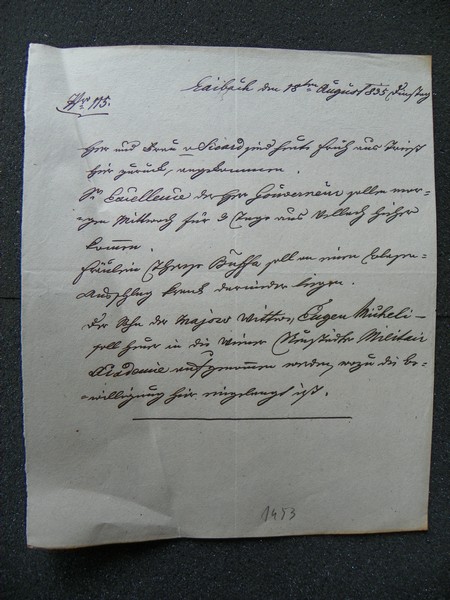 Laibach den 18ten August 835 Dinstag
Nro 115.
Herr und Frau v Sicard sind heute früh aus Triest
hier zurück, angekommen.
Se Excellence der Herr Gouverneur sollen mor-
gen Mittwoch für 3 Tage aus Veldach hieher
kommen.
Fräulein Therese Buffa soll an einem Blasen-
Ausschlag krank darnieder liegen.
Der Sohn der Majors Wittwe, Eugen Micheli-
soll heuer in die Wiener Neustädter Militair
Academie aufgenommen werden, wozu die Be-
willigung hier eingelangt ist.
1453